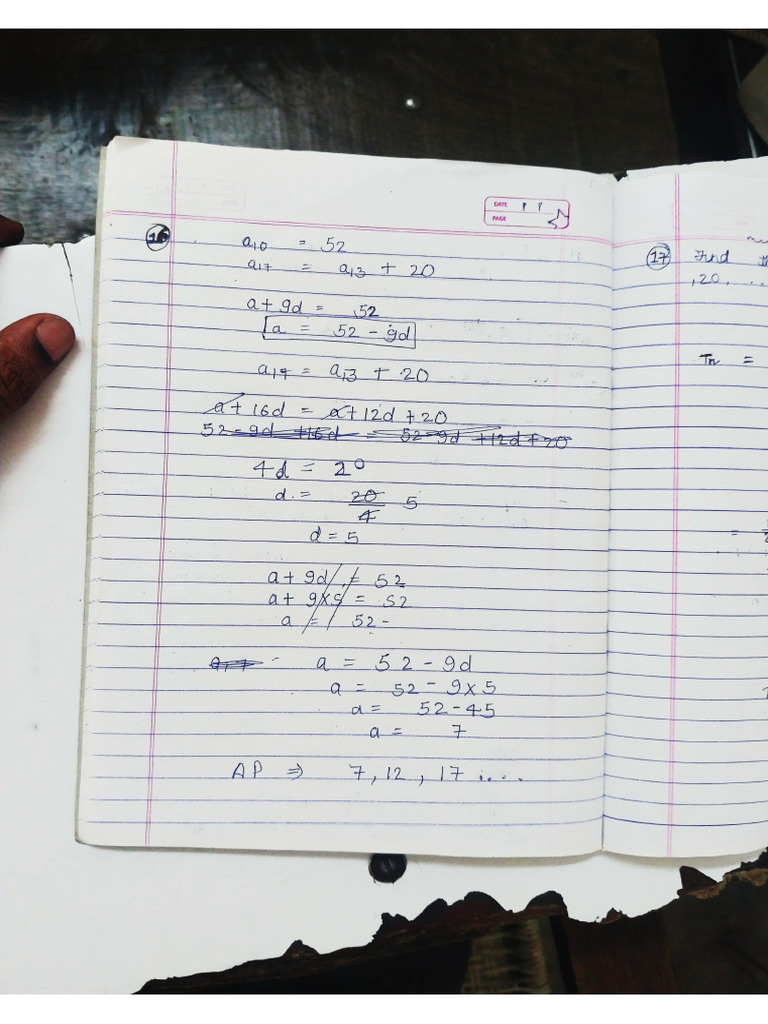 DATE
PAGE
16
a10 = 52
a17 = a13 + 20
a + 9d = 52
a = 52 - 9d
a17 = a13 + 20
a + 16d = a + 12d + 20
52 - 9d + 16d = 52 - 9d + 12d + 20
4d = 20
d = 20/4 5
d = 5
a + 9d = 52
a + 9 x 5 = 52
a = 52 -
a = 52 - 9d
a = 52 - 9 x 5
a = 52 - 45
a = 7
AP ⇒ 7, 12, 17 ....
17 Find
, 20, ..
Tn =
=